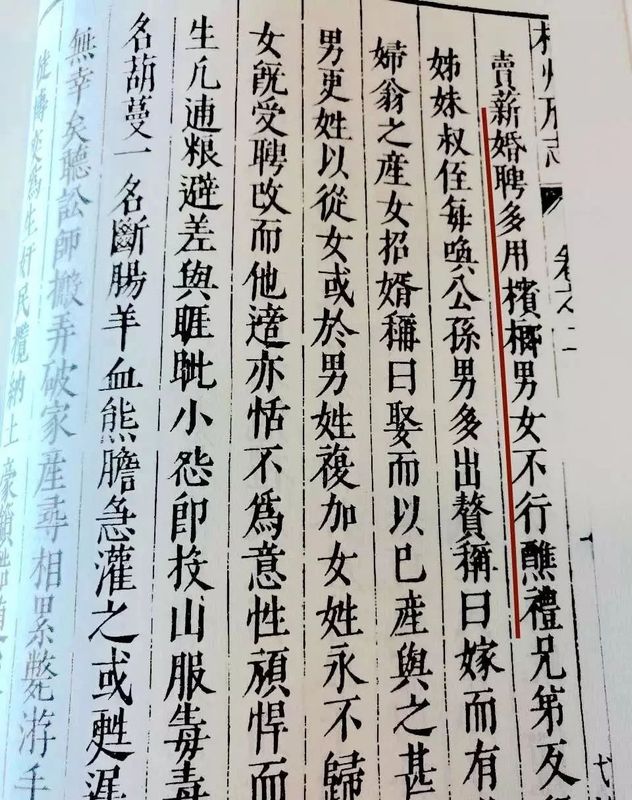 州府志
賣薪婚聘多用檳榔男女不行醮禮兄弟
姊妹叔侄每喚公孫男多出贅稱曰嫁而有
婦翁之産女招婿稱曰娶而以己産與之甚
男更姓以從女或於男姓複加女姓永不歸
女旣受聘改而他適亦恬不爲意性頑悍而
生凡逋粮避差與睚眦小怨即投山服毒毒
名葫蔓一名斷腸羊血熊膽急灌之或甦遲
無幸矣聽訟師搬弄破家産尋相累斃游手
徒慱奕爲生奸民攬納